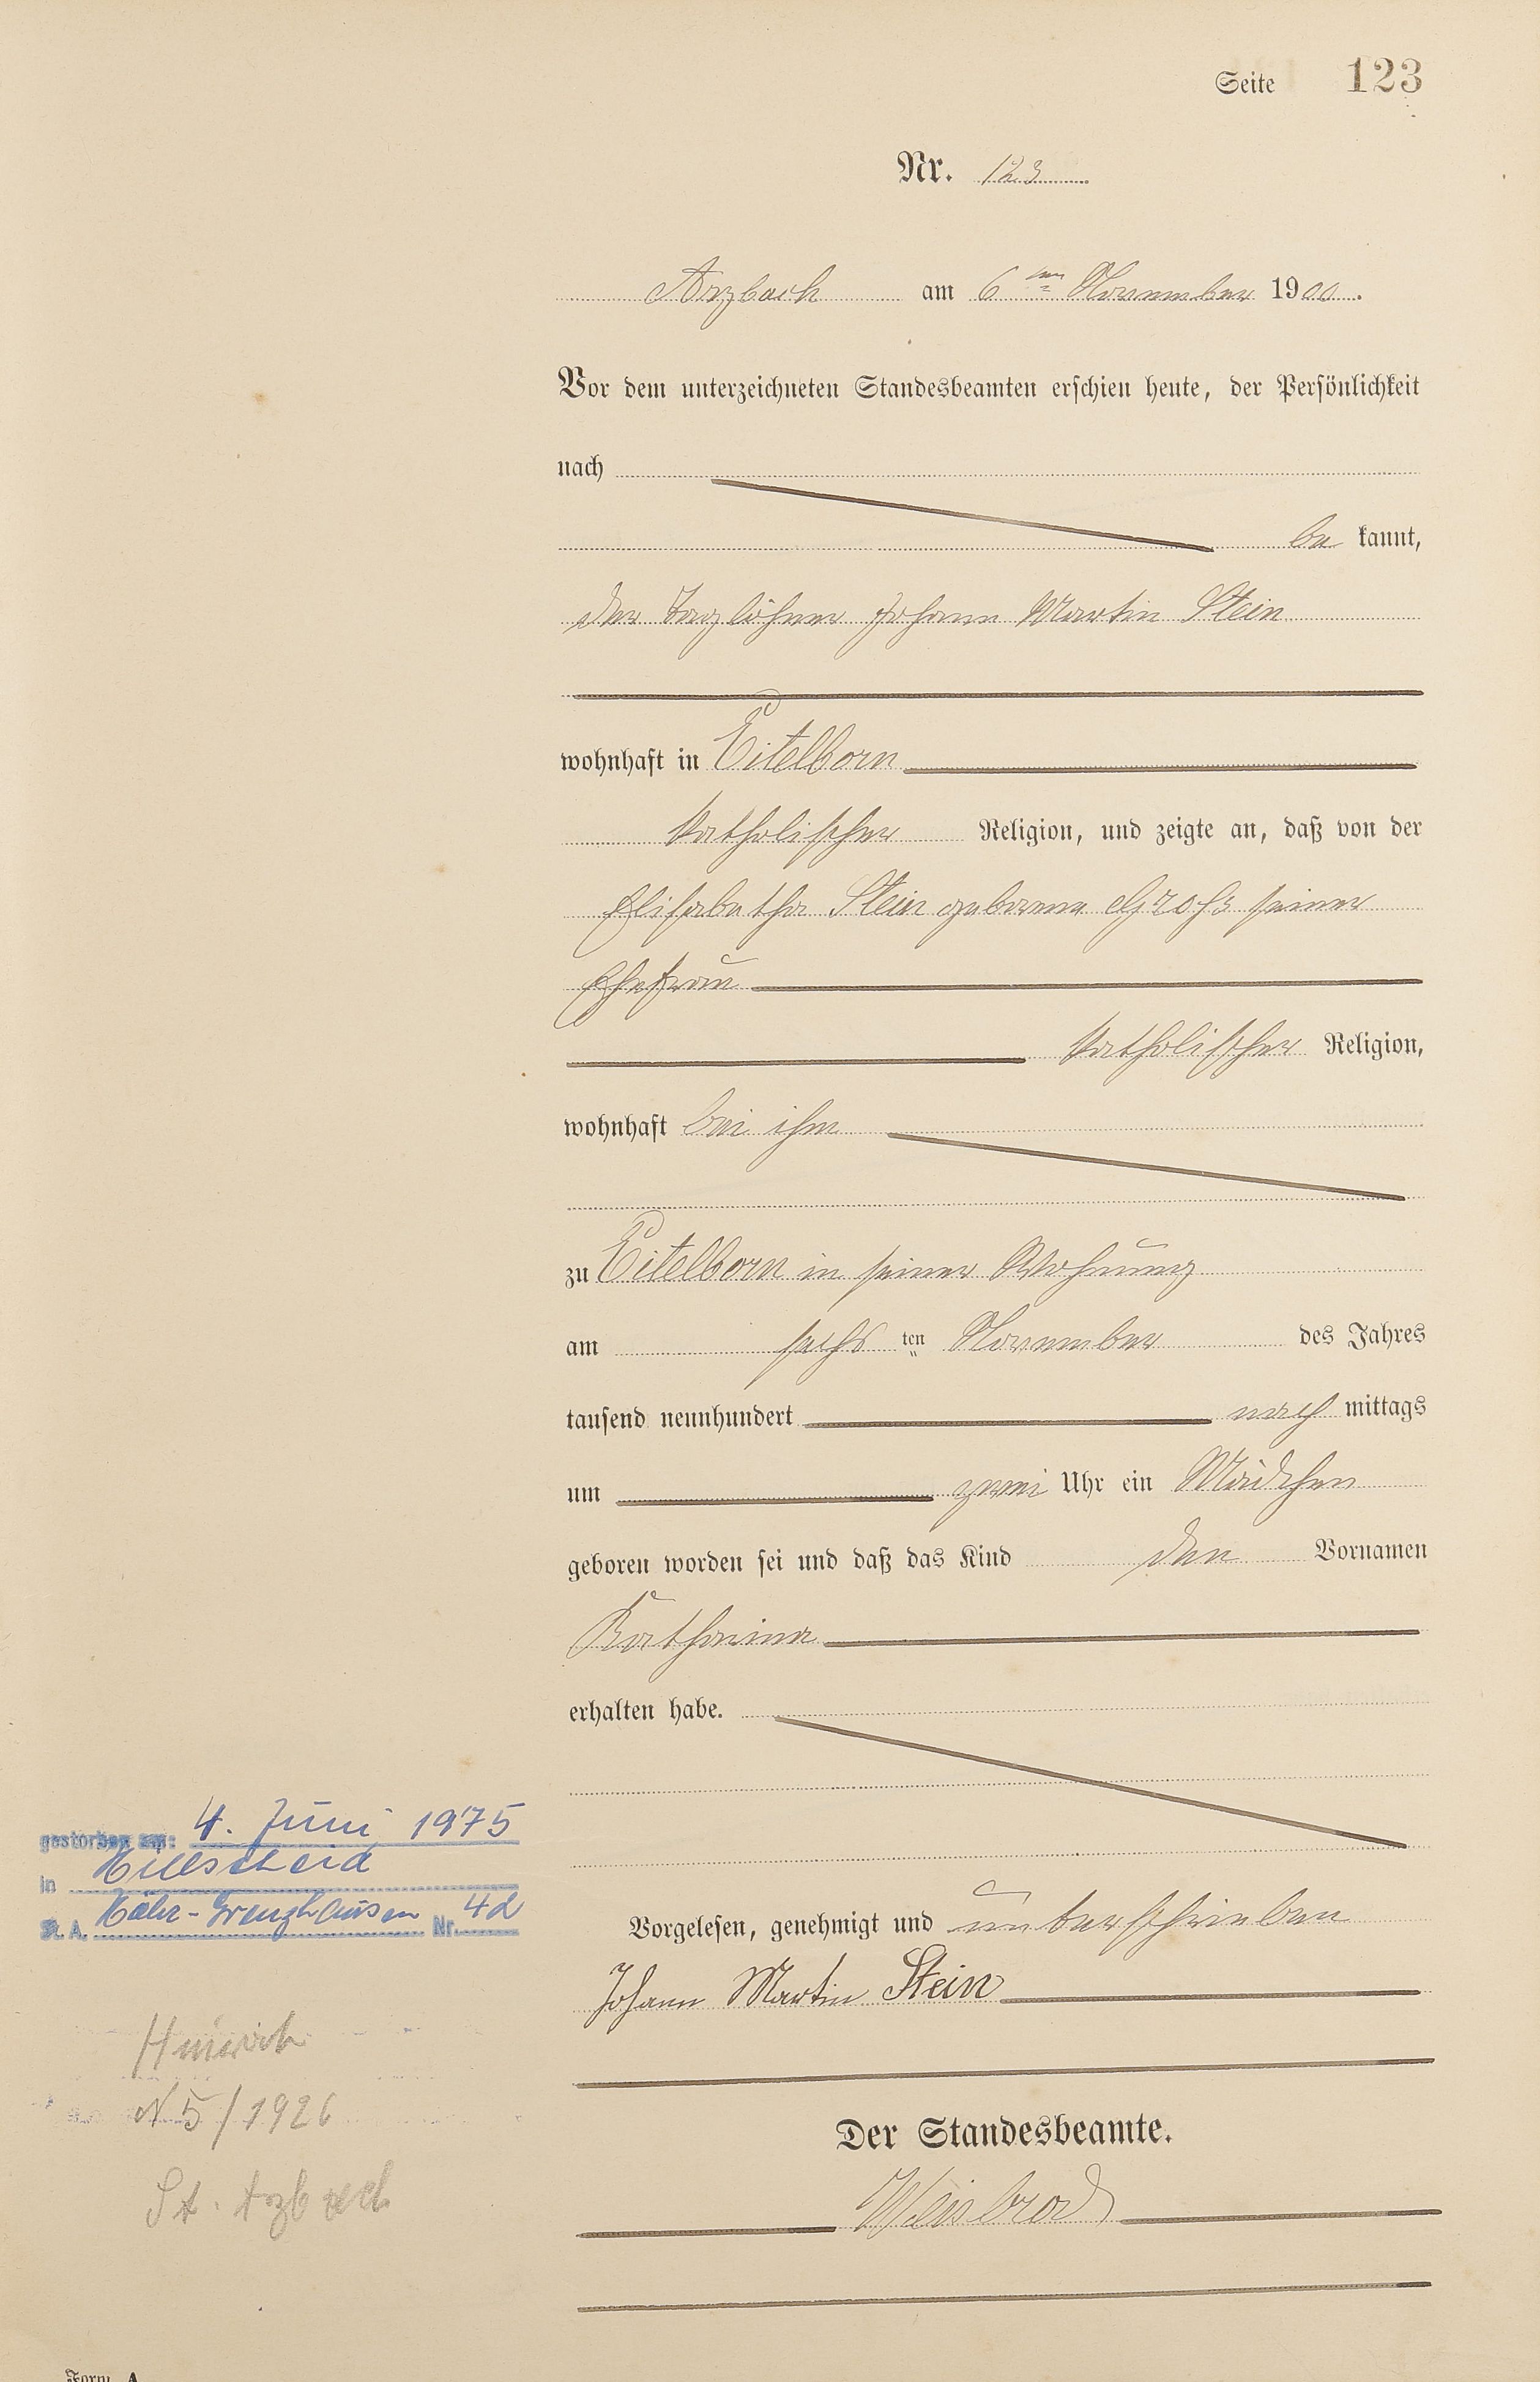 Seite 123
Nr. 123
Arzbach am 6ten November 1900.
Vor dem unterzeichneten Standesbeamten erschien heute, der Persönlichkeit
nach
be kannt,
der Taglöhner Johann Martin Stein
wohnhaft in Eitelborn
katholischer Religion, und zeigte an, daß von der
Elisabetha Stein geborene Groß seiner
Ehefrau
katholischer Religion,
wohnhaft bei ihm
zu Eitelborn in seiner Wohnung
am sechs ten November des Jahres
tausend neunhundert nach mittags
um zwei Uhr ein Mädchen
geboren worden sei und daß das Kind den Vornamen
Katharina
erhalten habe.
gestorben am: 4. Juni 1975
in Hillscheid
St. A. Höhr-Grenzhausen Nr. 42
Vorgelesen, genehmigt und unterschrieben
Johann Martin Stein
Heirat
N 5/1926
St. Arzbach
Der Standesbeamte.
Weisbrod
Form. A